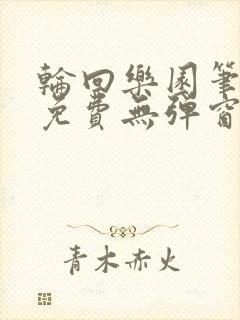 輪回樂園筆
免費無彈窗
青木赤火